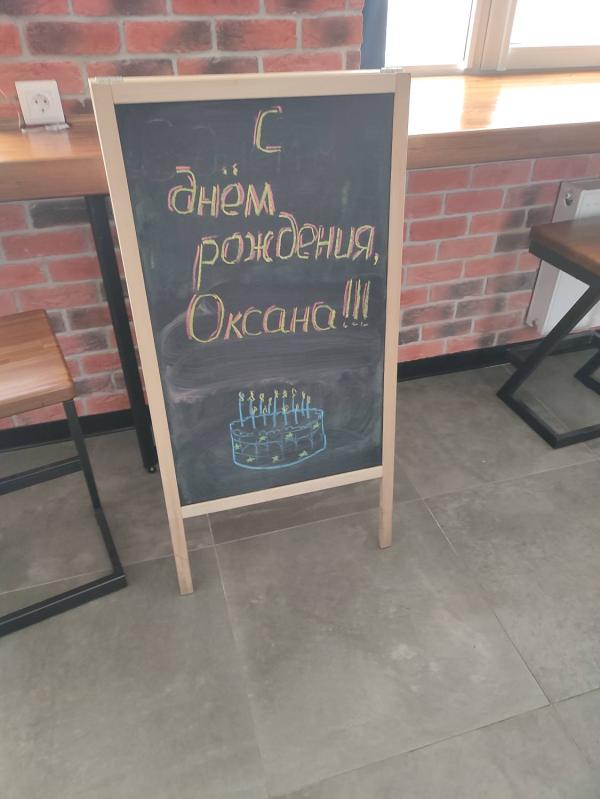 С
днём
рождения,
Оксана!!!